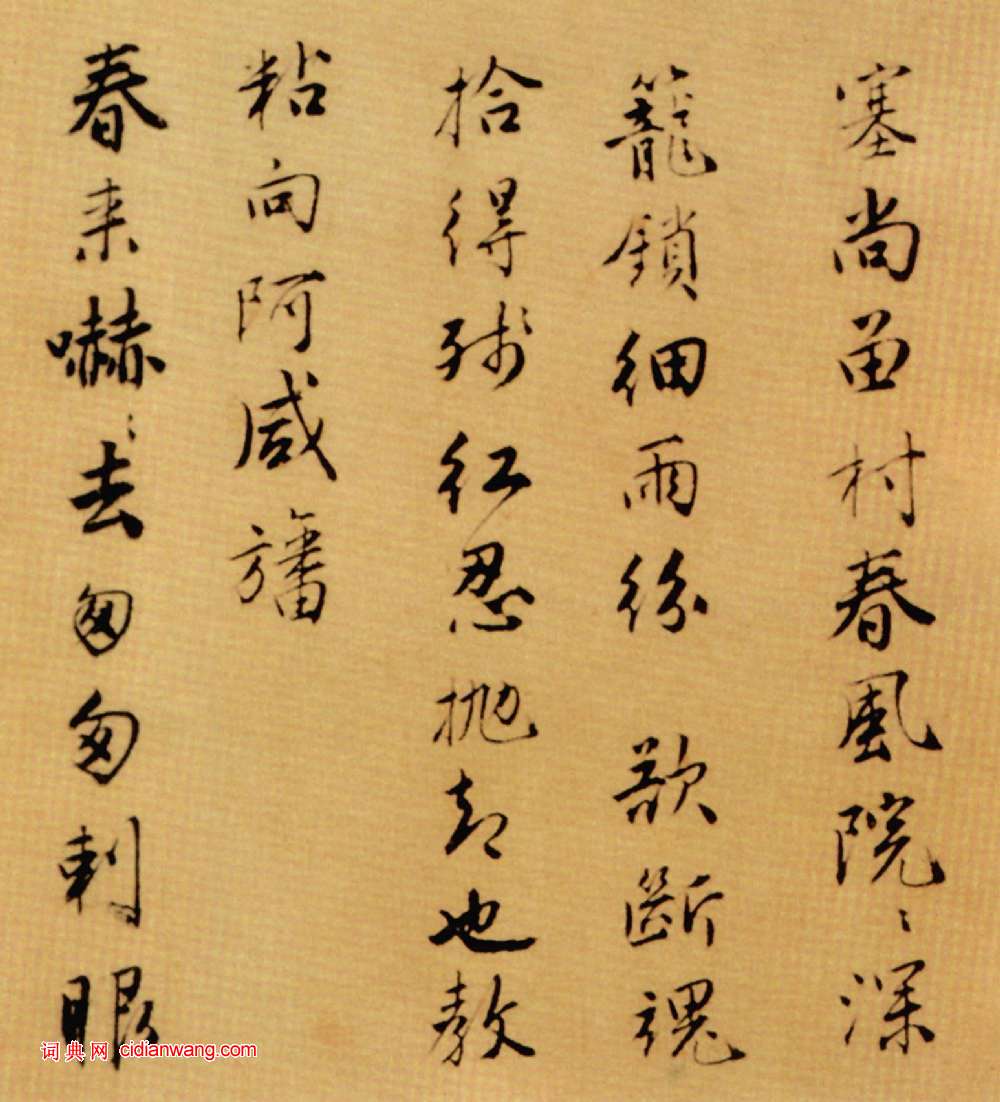 塞尚留村春風院〻深
籠鎖細雨紛 欲斷魂
拾得殘紅忍拋却也教
粘向阿咸旛
春来嚇〻去匆匆刺眼
词典网 cidianwang.com